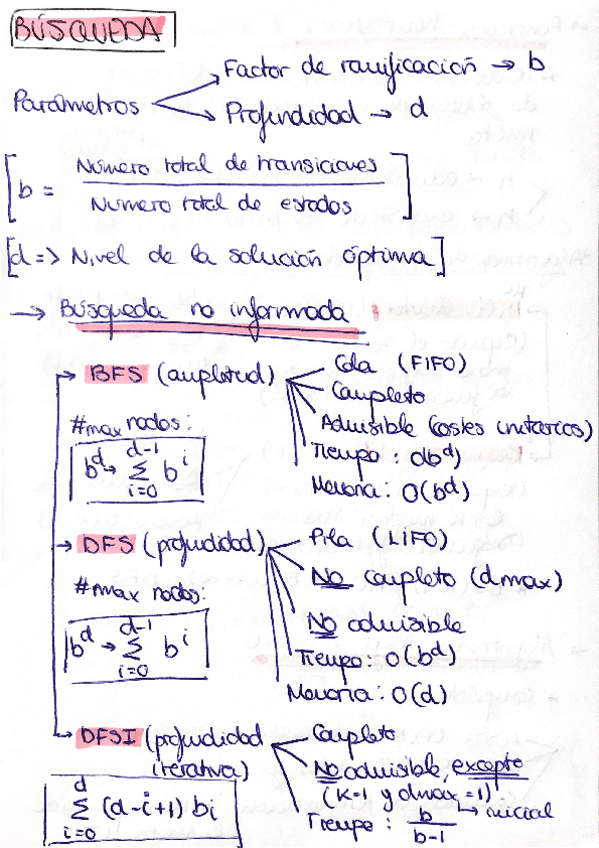 BÚSQUEDA
Parámetros
Factor de ramificación → b
Profundidad → d
[b = Número total de transiciones / Número total de estados]
[d => Nivel de la solución óptima]
→ Búsqueda no informada:
→ BFS (amplitud)
Cola (FIFO)
Completo
Admisible (costes unitarios)
Tiempo: O(b^d)
Memoria: O(b^d)
#max nodos:
b^d → Σ_{i=0}^{d-1} b^i
→ DFS (profundidad)
Pila (LIFO)
NO completo (dmax)
NO admisible
Tiempo: O(b^d)
Memoria: O(d)
#max nodos:
b^d → Σ_{i=0}^{d-1} b^i
→ DFSI (profundidad
iterativa)
Completo
No admisible, excepto
(K=1 y dmax=1)
→ inicial
Tiempo: b / b-1
Σ_{i=0}^{d} (d-i+1) bi